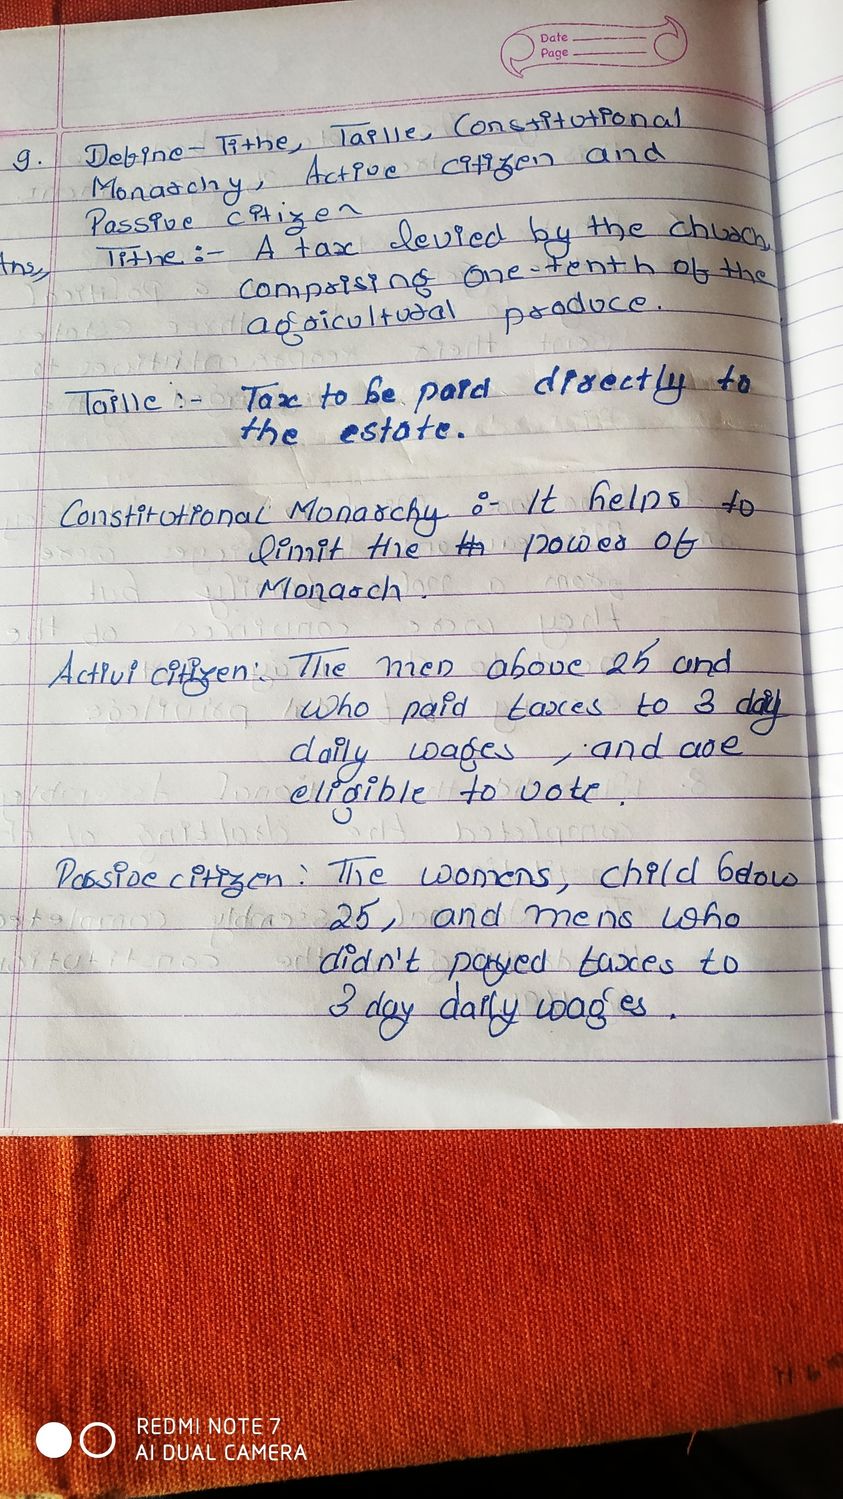 Date
Page
9. Define - Tithe, Taille, Constitutional
Monarchy, Active citizen and
Passive citizen
Ans, Tithe :- A tax levied by the church,
comprising one-tenth of the
agricultural produce.
Taille :- Tax to be paid directly to
the estate.
Constitutional Monarchy :- It helps to
limit the th power of
Monarch.
Activi citizen: The men above 25 and
who paid taxes to 3 day
daily wages, and are
eligible to vote.
Passive citizen: The womens, child below
25, and mens who
didn't payed taxes to
3 day daily wages.
REDMI NOTE 7
AI DUAL CAMERA